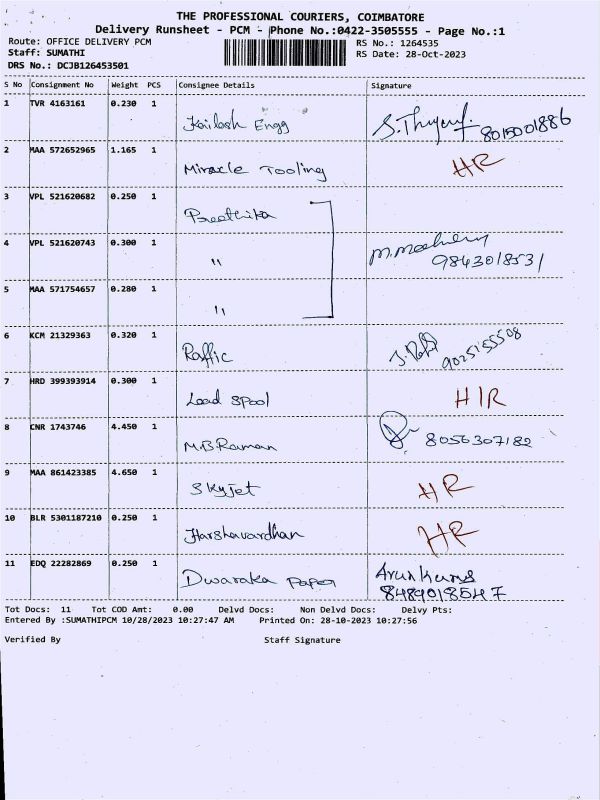 THE PROFESSIONAL COURIERS, COIMBATORE
Delivery Runsheet - PCM - Phone No.:0422-3505555 - Page No.:1
Route: OFFICE DELIVERY PCM RS No.: 1264535
Staff: SUMATHI RS Date: 28-Oct-2023
DRS No.: DCJB126453501
S No Consignment No Weight PCS Consignee Details Signature
1 TVR 4163161 0.230 1 Kailash Engg 8015001886
2 MAA 572652965 1.165 1 Miracle Tooling HR
3 VPL 521620682 0.250 1 Preethika
4 VPL 521620743 0.300 1 " 9843018531
5 MAA 571754657 0.280 1 "
6 KCM 21329363 0.320 1 Raffic 9025155508
7 HRD 399393914 0.300 1 Lead Spool HR
8 CNR 1743746 4.450 1 M.B Raman 8056307182
9 MAA 861423385 4.650 1 Skyjet HR
10 BLR 5301187210 0.250 1 Harshavardhan HR
11 EDQ 22282869 0.250 1 Dwaraka Paper Arun Kumar
8489018547
Tot Docs: 11 Tot COD Amt: 0.00 Delvd Docs: Non Delvd Docs: Delvy Pts:
Entered By :SUMATHIPCM 10/28/2023 10:27:47 AM Printed On: 28-10-2023 10:27:56
Verified By Staff Signature